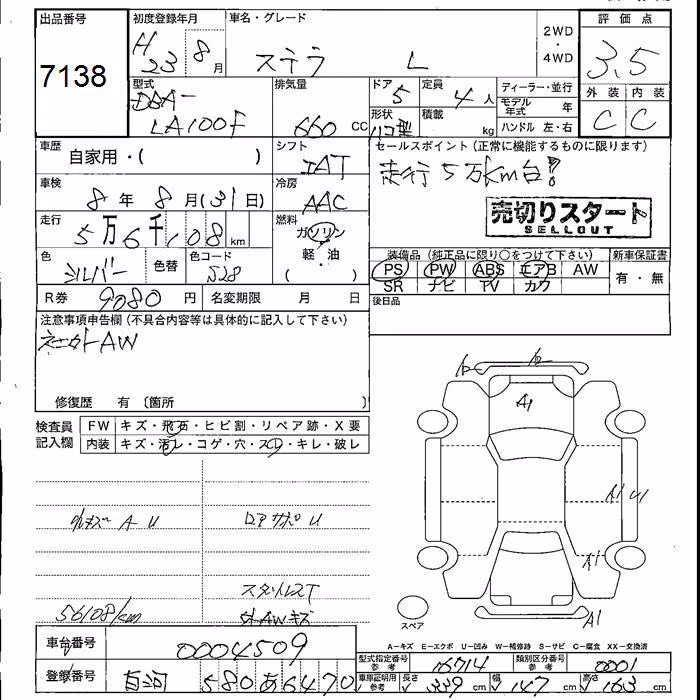 出品番号 初度登録年月 車名・グレード 2WD・4WD 評価点
7138 H23 8月 ステラ L 3.5
型式 排気量 ドア 定員 ディーラー・並行 外装 内装
DBA-LA100F 660 CC 5 4人 モデル年式 年 C C
形状 積載 kg ハンドル 左・右
車歴 自家用・( ) シフト IAT セールスポイント(正常に機能するものに限ります)
走行5万km台!
車検 8年8月(31日) 冷房 AAC
売切りスタート
SELLOUT
走行 5万6千108km 燃料 ガソリン・軽・油 ( )
装備品(純正品に限り○をつけて下さい) 新車保証書
色 シルバー 色替 色コード S28
PS PW ABS エアB AW 有・無
SR ナビ TV カワ
R券 9080円 名変期限 月 日 後日品
注意事項申告欄(不具合内容等は具体的に記入して下さい)
AW
修復歴 有 〔箇所 〕
検査員記入欄 FW キズ・飛石・ヒビ割・リペア跡・X要
内装 キズ・汚レ・コゲ・穴・スレ・キレ・破レ
A1
A1 U1
A1
A1
小キズ A U
リアサポU
56108km
スペア
A-キズ E-エクボ U-凹み W-補修跡 S-サビ C-腐食 XX-交換済
車台番号 0004509
型式指定番号 参考 16714 類別区分番号 参考 0001
登録番号 580 あ6470
車庫証明用 参考 長さ 339cm 幅 147cm 高さ 163cm